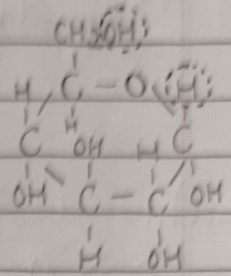 CH₂OH
H C - O H
H
C OH H C
OH C - C OH
H OH